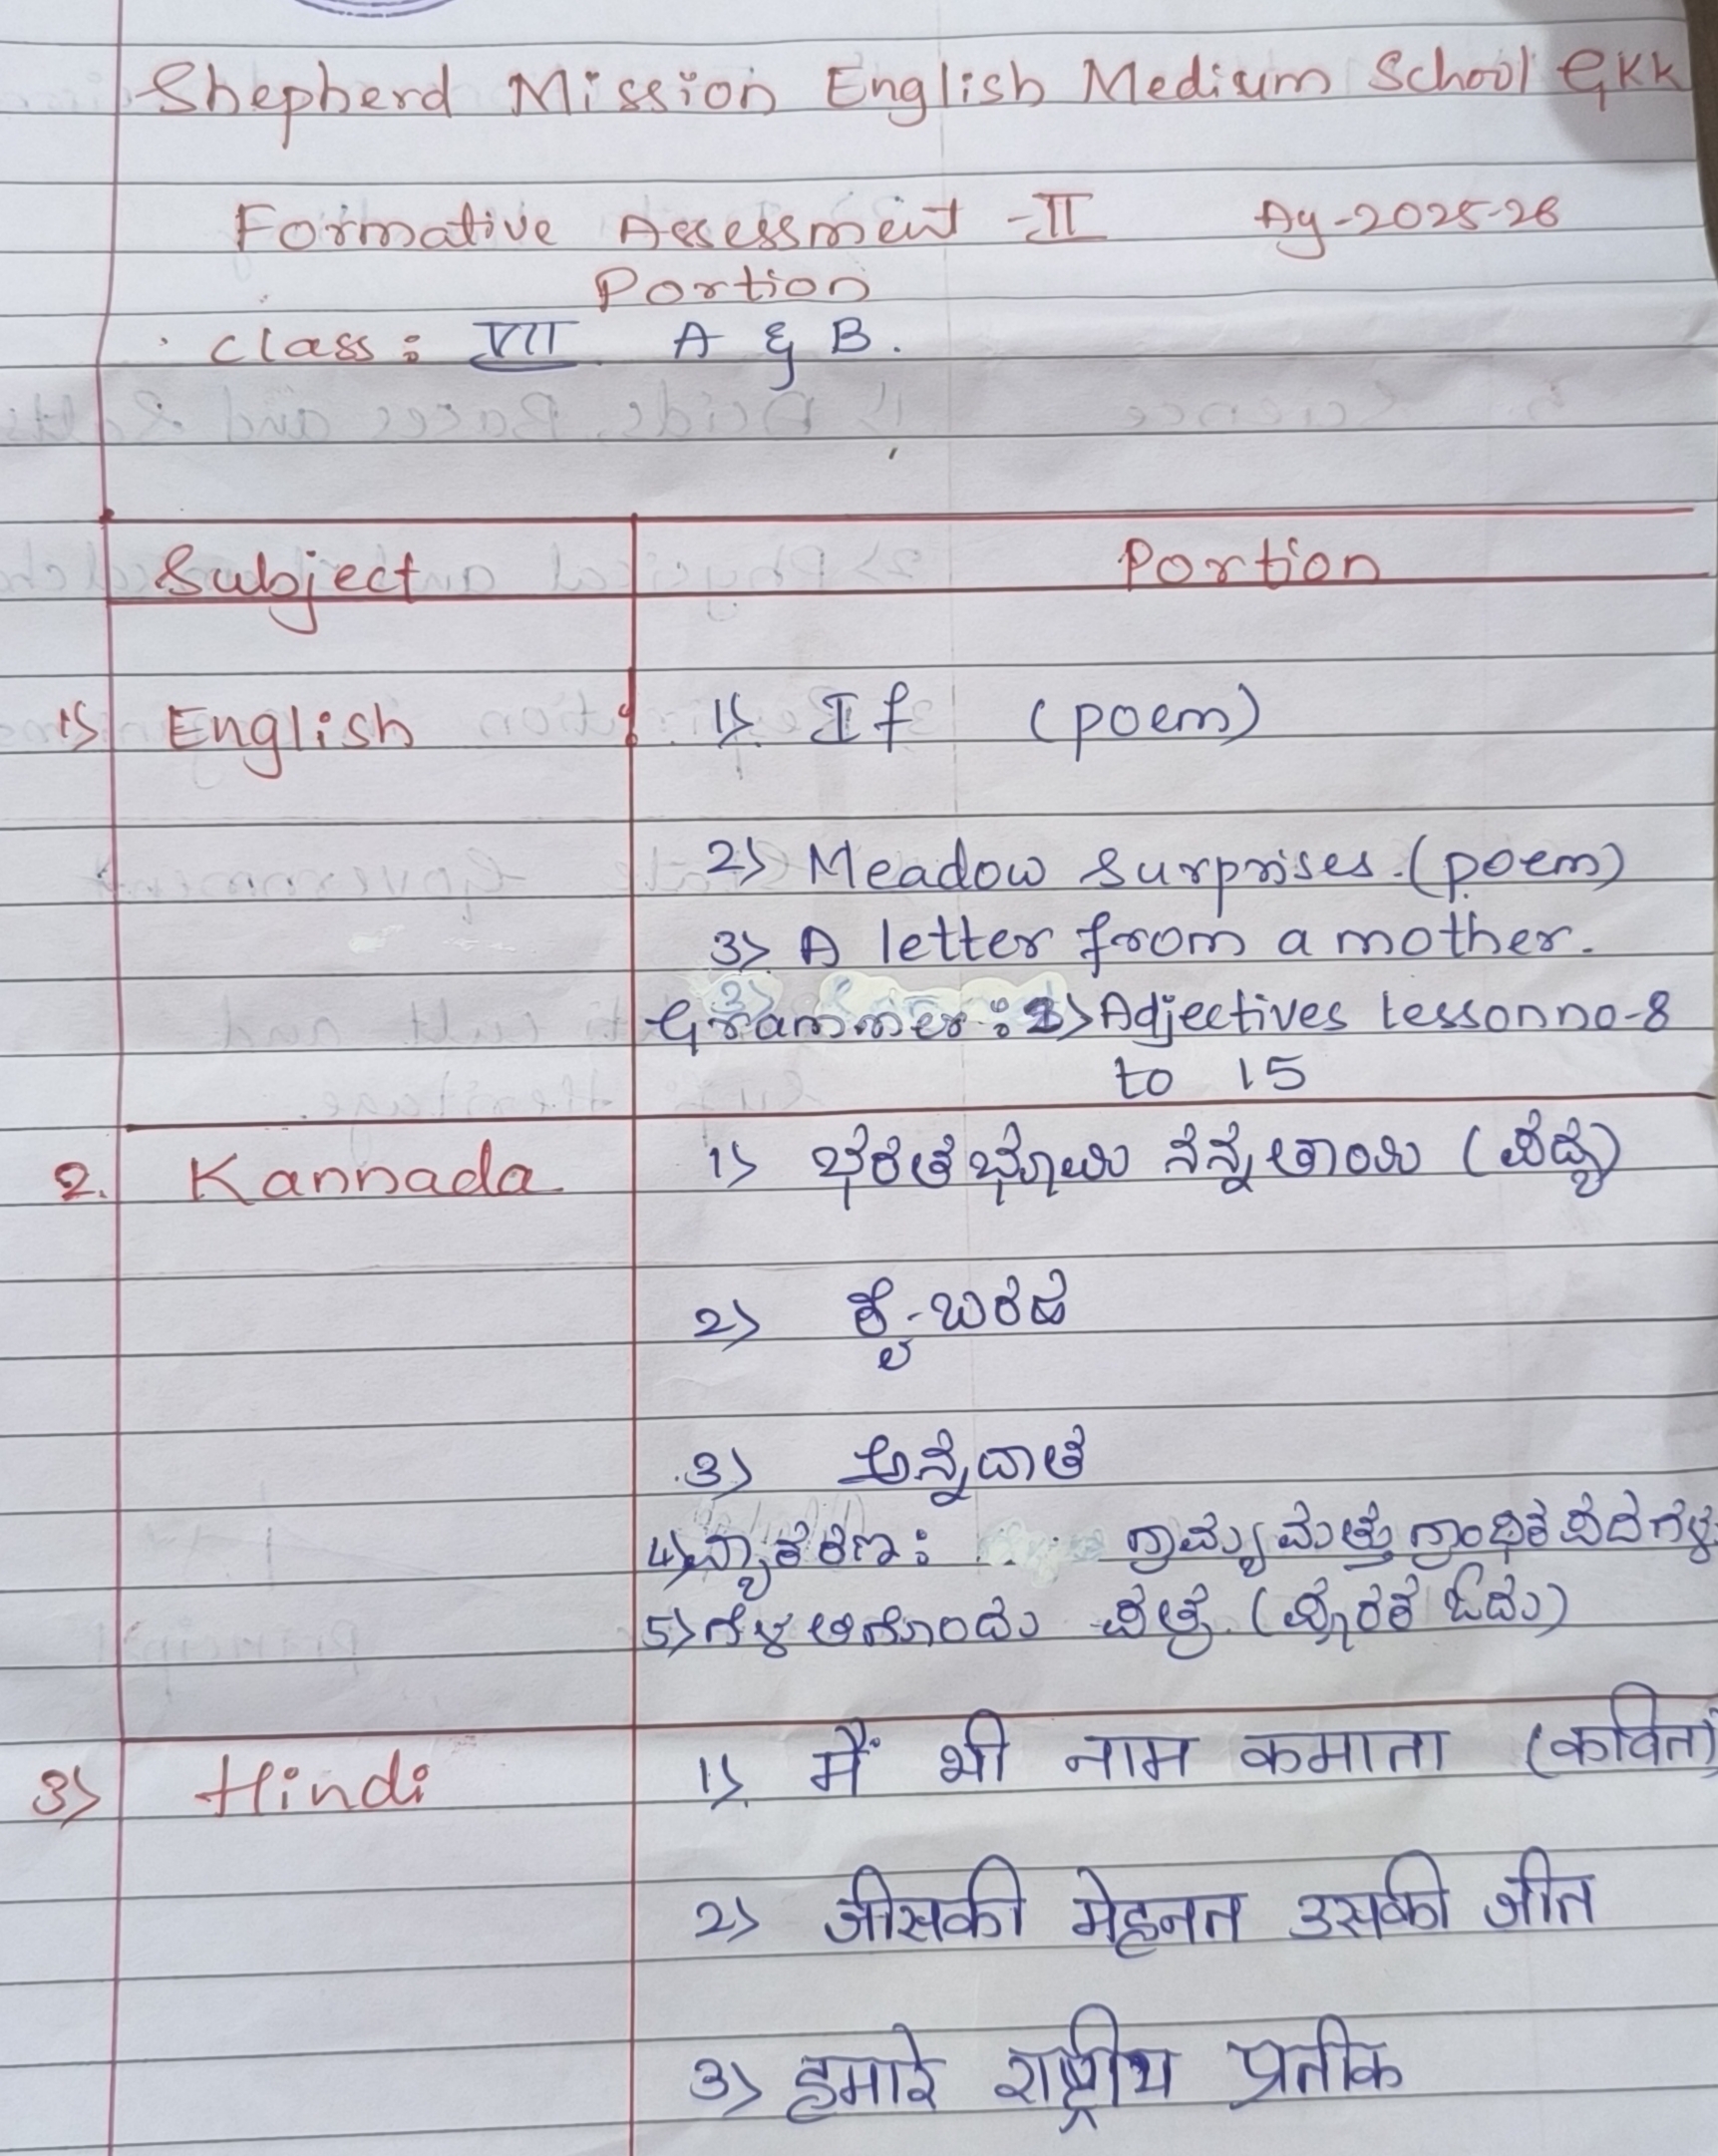 Shepherd Mission English Medium School GKK
Formative Assessment - II Ay-2025-26
Portion
Class: VII A & B.
Subject Portion
1) English 1) If (poem)
2) Meadow surprises. (poem)
3) A letter from a mother.
Grammer: Adjectives lesson no-8
to 15
2. Kannada 1) ಭರತಭೂಮಿ ನನ್ನ ತಾಯಿ (ಪದ್ಯ)
2) ಕೈ-ಬರಹ
3) ಅನ್ನದಾತ
4) ವ್ಯಾಕರಣ: ಗ್ರಾಮ್ಯ ಮತ್ತು ಗ್ರಾಂಥಿಕ ಪದಗಳು
5) ಗೆಳತಿಗೊಂದು ಪತ್ರ. (ಪೂರಕ ಓದು)
3) Hindi 1) मैं भी नाम कमाता (कविता)
2) जीसकी मेहनत उसकी जीत
3) हमारे राष्ट्रीय प्रतीक